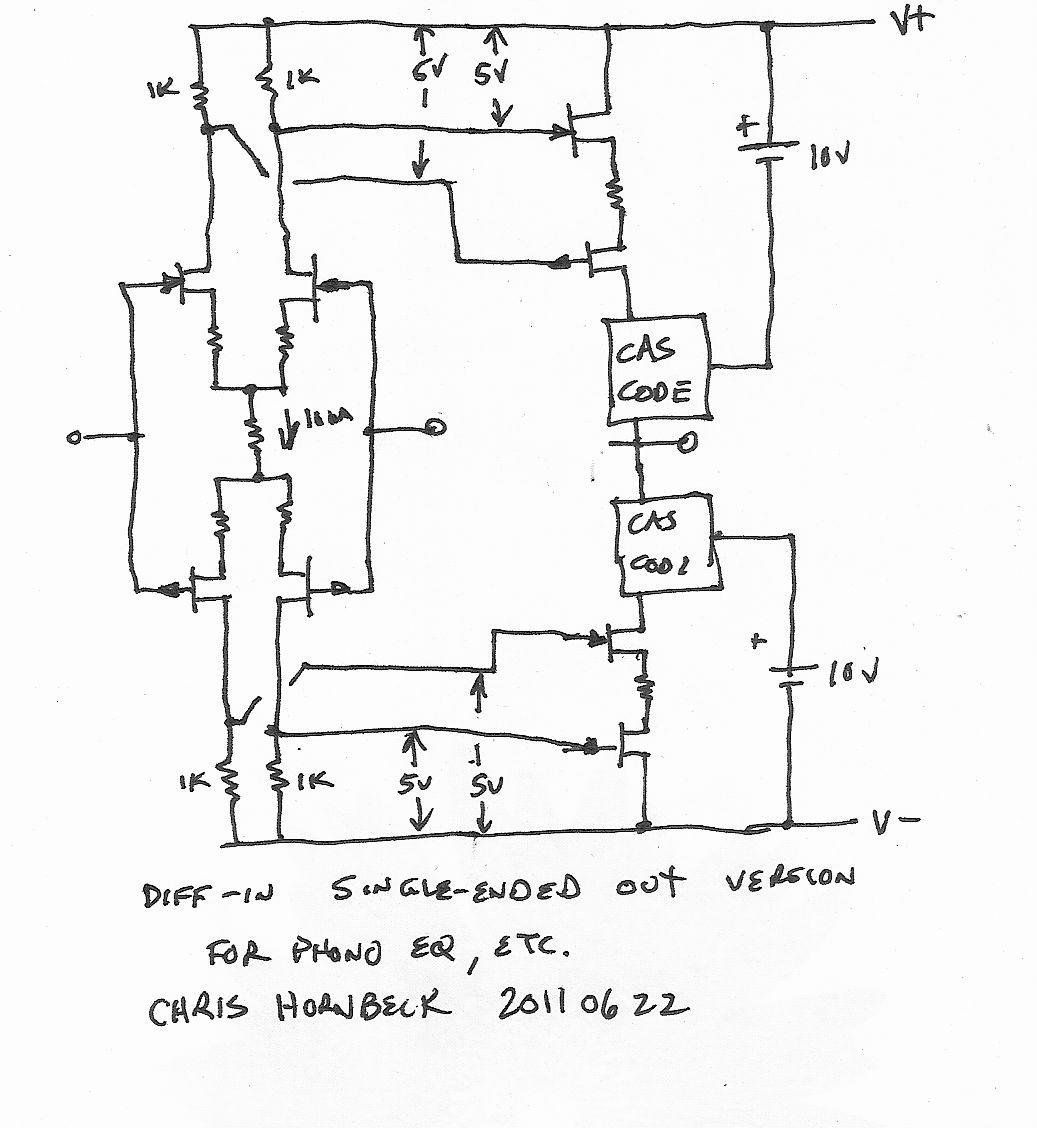 V+
6V 5V
1K 1K
+ 10V
CAS
CODE
CAS
+
10V
1K 1K 5V 5V
V-
DIFF-IN SINGLE-ENDED OUT VERSION
FOR PHONO EQ, ETC.
CHRIS HORNBECK 2011 06 22